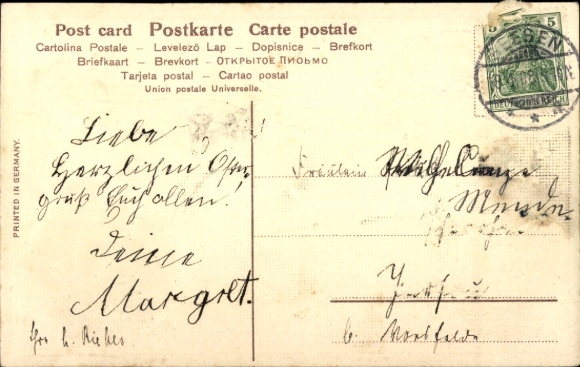 Post card Postkarte Carte postale
Cartolina Postale – Levelező Lap – Dopisnice – Brefkort
Briefkaart – Brevkort – Открытое письмо
Tarjeta postal – Cartao postal
Union postale Universelle.
PRINTED IN GERMANY.
5 5
ESSEN
DEUTSCHES REICH
Liebe
Herzlichen Oster
gruß Euch allen!
Deine
Margret.
Fräulein
Mende
b. Vorsfelde